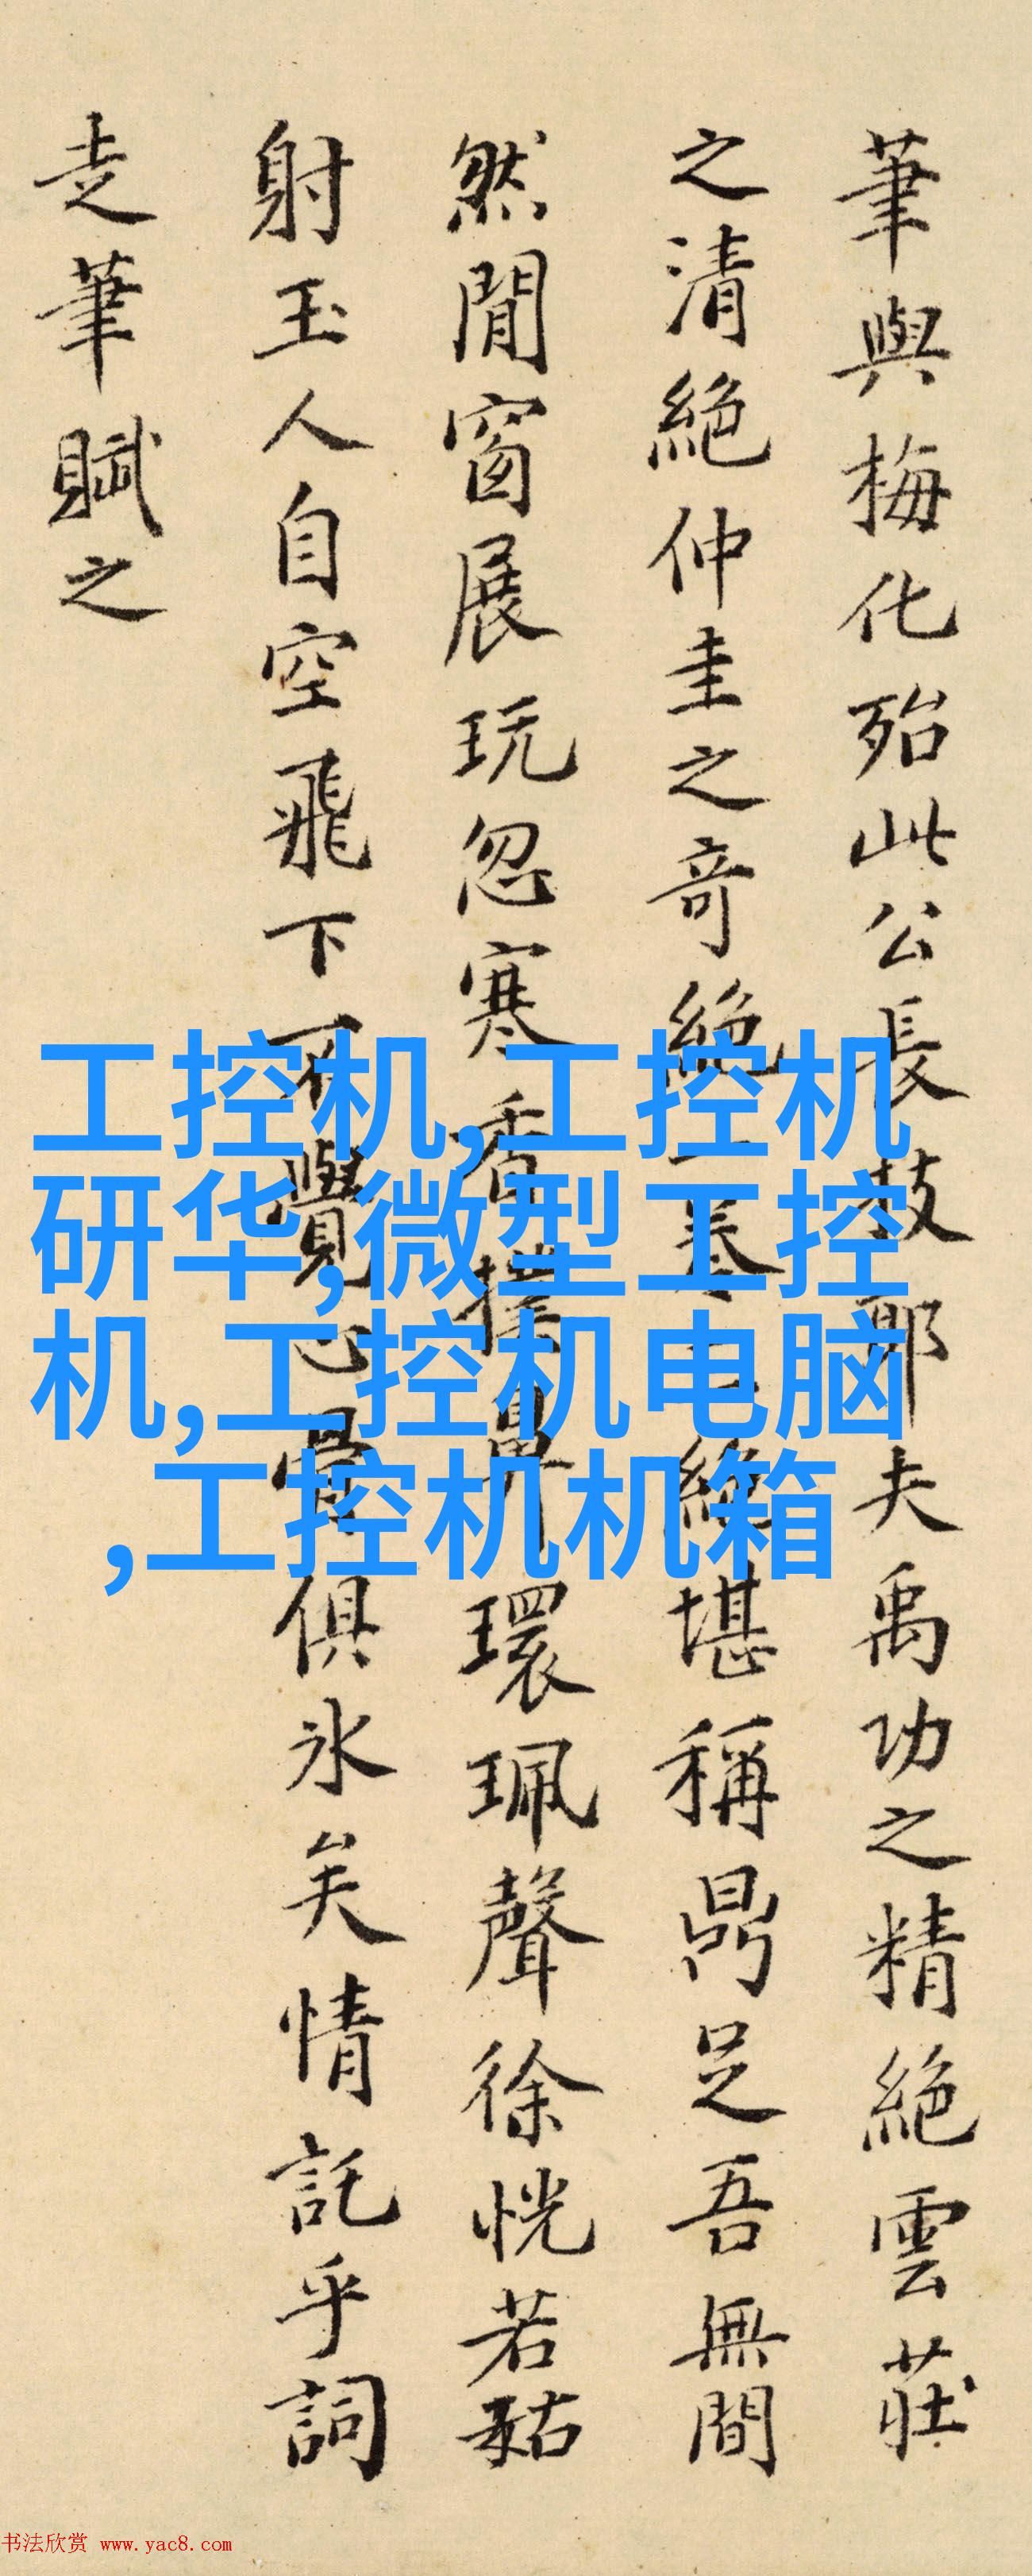 筆與梅化殆此公長技耶夫禹功之精絕雲莊
之清絕仲圭之奇絕一卷三絕堪稱鼎足吾無間
然閒窗展玩忽寒香撲鼻環珮聲徐恍若姑
射玉人自空飛下不覺心骨俱冰矣情託乎詞
走筆賦之
工控机,工控机
研华,微型工控
机,工控机电脑
,工控机机箱
书法欣赏 www.yac8.com